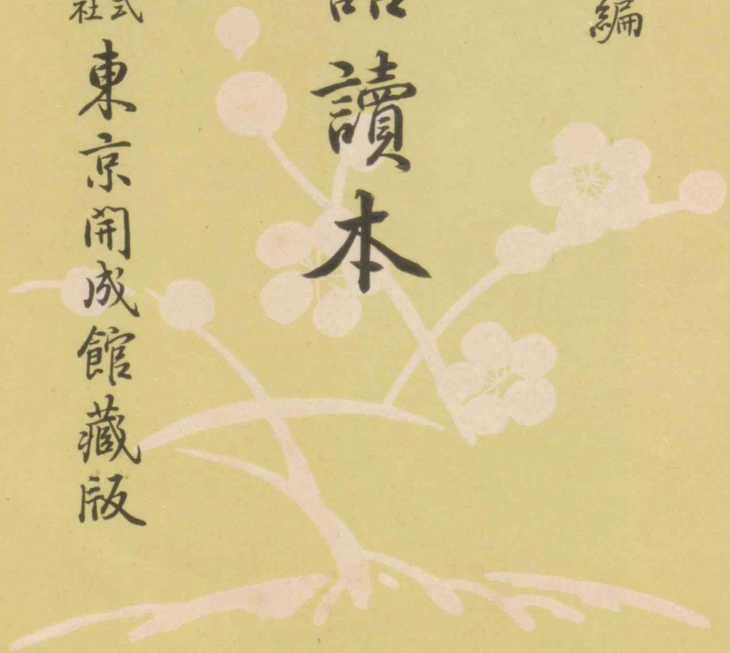 編
讀本
式社 東京開成館藏版